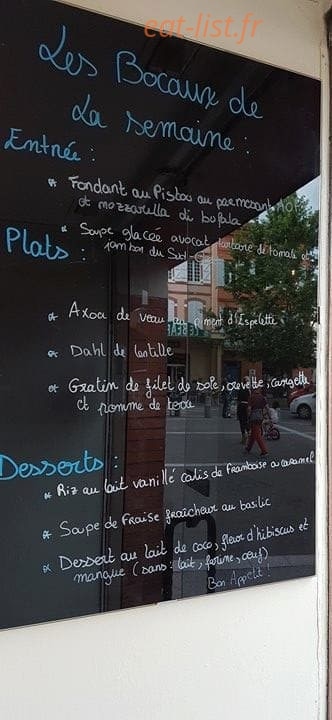 eat-list.fr
Les Bocaux de
La semaine :
Entrée :
* Fondant au Pistou au parmesan AOP
et mozzarella di bufala
* Soupe glacée avocat tartare de tomate et
jambon du Sud-O
Plats :
* Axoa de veau au piment d'Espelette
* Dahl de lentille
* Gratin de filet de sole, crevette, courgette
et pomme de terre
Desserts :
* Riz au lait vanillé coulis de Framboise au caramel
* Soupe de Fraise fraîcheur au basilic
* Dessert au lait de coco, fleur d'hibiscus et
mangue (sans : lait, farine, œuf)
Bon Appétit !